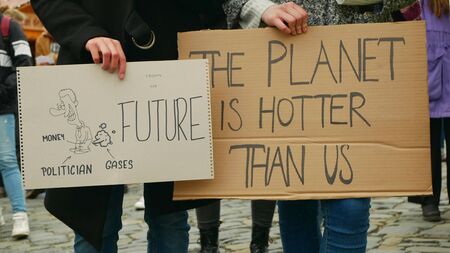 FUTURE
MONEY
POLITICIAN GASES
THE PLANET
IS HOTTER
THAN US